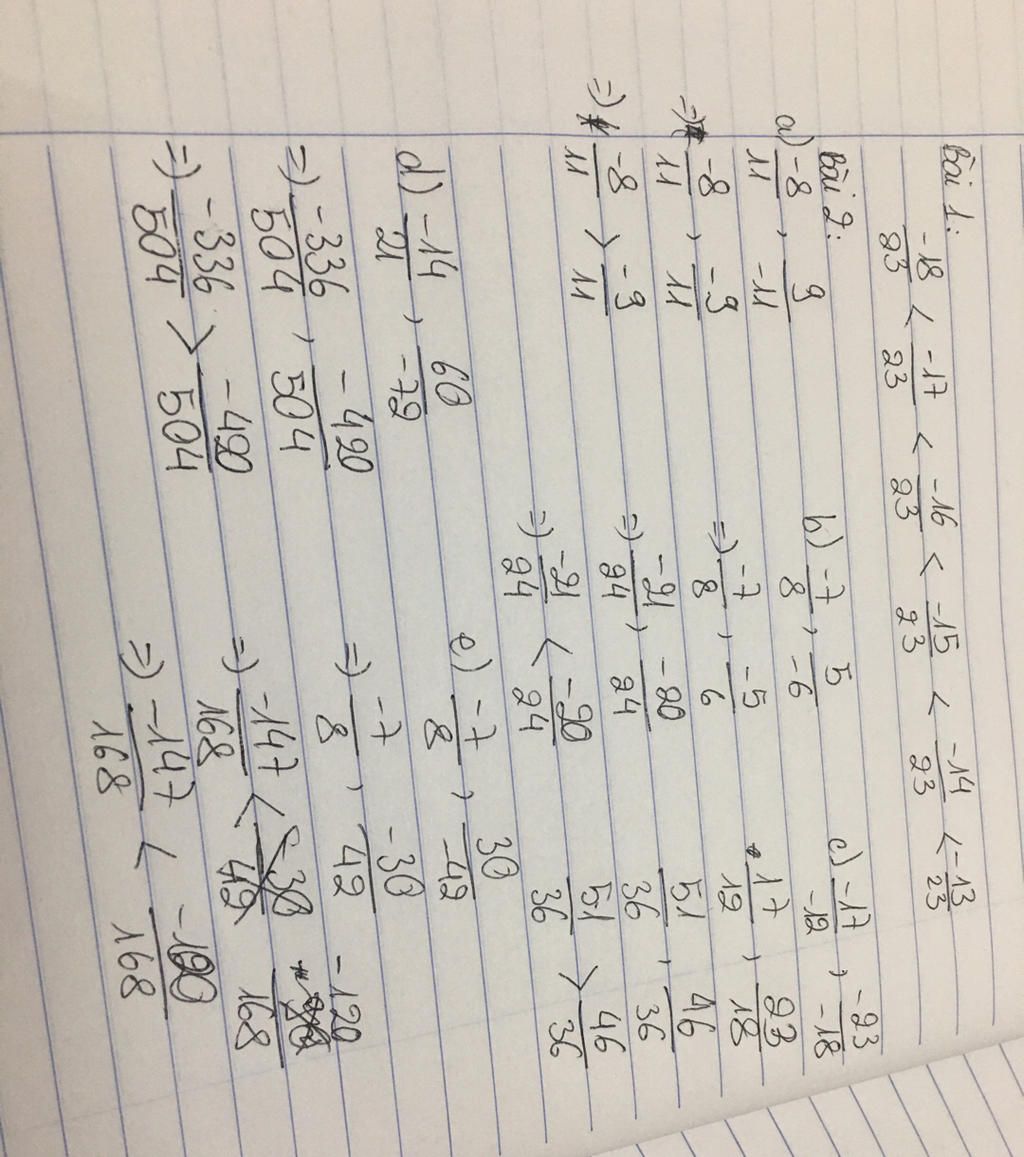 Bài 1:
-18/23 < -17/23 < -16/23 < -15/23 < -14/23 < -13/23
Bài 2:
a) -8/11 , 9/-11
=) -8/11 , -9/11
=) -8/11 > -9/11
b) -7/8 , 5/-6
=) -7/8 , -5/6
=) -21/24 , -20/24
=) -21/24 < -20/24
c) -17/-12 , -23/-18
17/12 , 23/18
51/36 , 46/36
51/36 > 46/36
d) -14/21 , 60/-72
=) -336/504 , -420/504
=) -336/504 > -420/504
e) -7/8 , 30/-42
=) -7/8 , -30/42
=) -147/168 < -120/168
=) -147/168 < -120/168